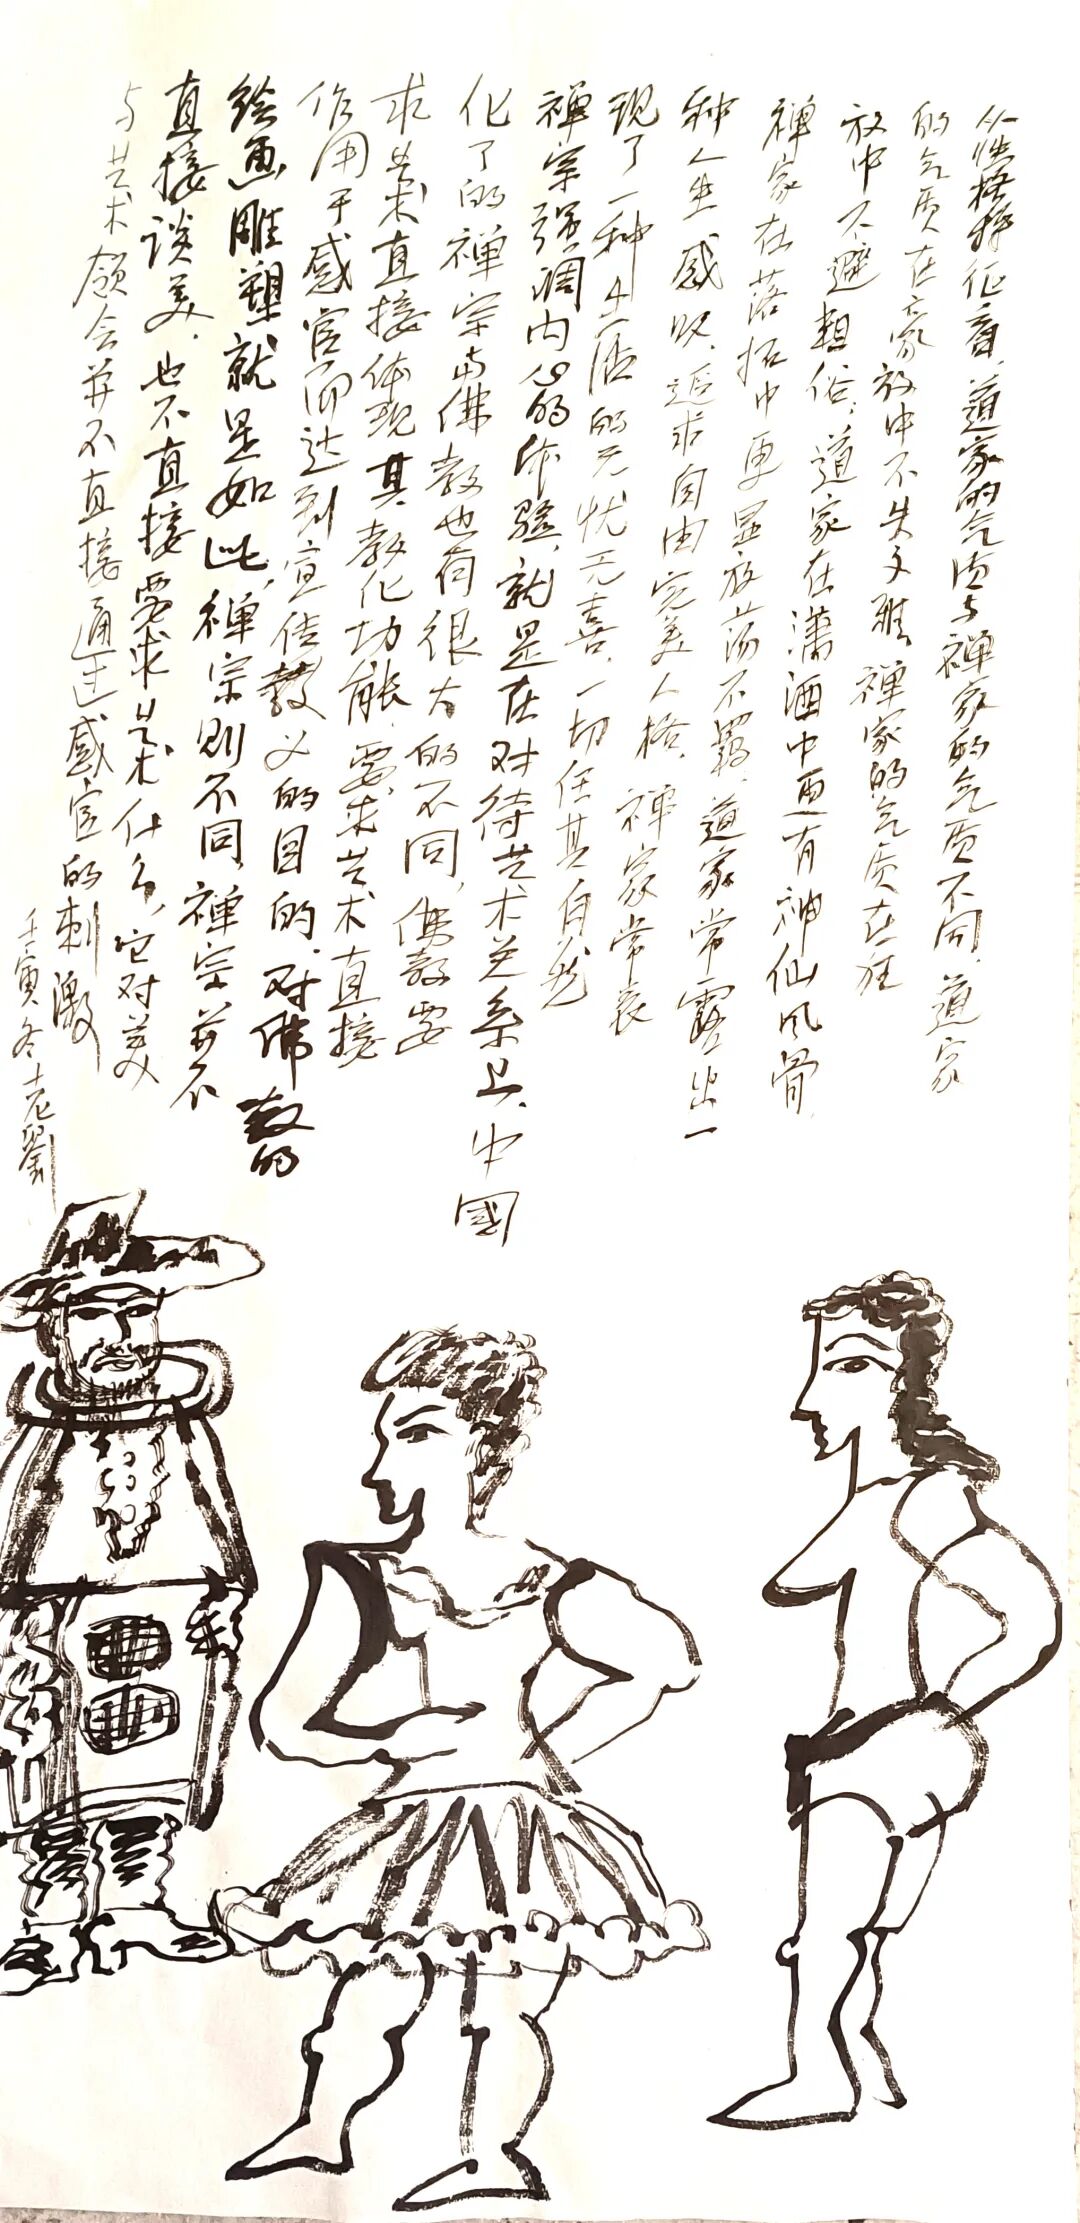 从性格特征看，道家的气质与禅家的气质不同，道家
的气质在豪放中不失文雅，禅家的气质在狂
放中不避粗俗；道家在潇洒中更有神仙风骨，
禅家在落拓中更显放荡不羁，道家常露出一
种人生感叹，追求自由完美人格，禅家常表
现了一种生活的无忧无喜，一切任其自然
禅宗强调内心的体验，就是在对待艺术关系上，中國
化了的禅宗与佛教也有很大的不同，佛教要
求艺术直接体现其教化功能，要求艺术直接
作用于感官而达到宣传教义的目的，对佛教的
绘画雕塑就是如此，禅宗则不同，禅宗并不
直接谈美，也不直接要求艺术什么，它对美
与艺术领会并不直接通过感官的刺激
壬寅冬老劉